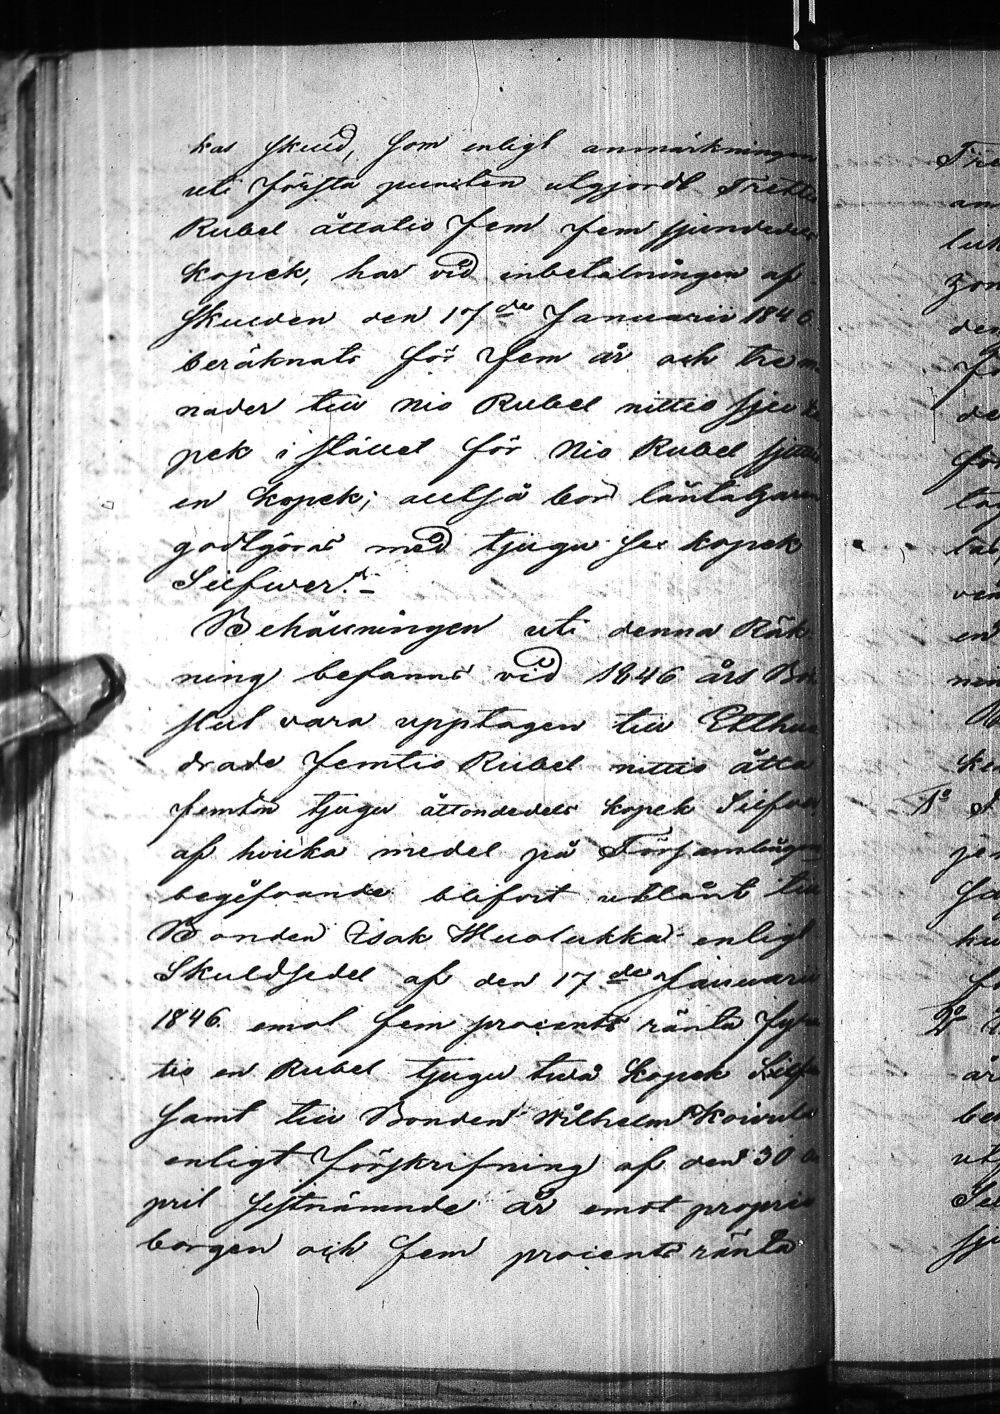 kas skuld, som enligt anmärkningen
uti första punkten utgjordt Trettio
Rubel åttatio fem fem sjundedels
kopek, har vid inbetalningen af
skulden den 17de Januarii 1846
beräknats för fem år och tre m
nader till nio Rubel nittio sju ko
pek i stället för Nio Rubel sjuttio
en kopek; alltså bör låntagaren
godtgöras med tjugu sex kopek
Silfwer.
Behållningen uti denna Räk
ning befanns vid 1846 års Bo
slut vara upptagen till Etthun
drade femtio Rubel nittio åtta
femton tjugu åttondedels kopek Silfwer
af hvilka medel på Församlingens
begäran blifvit utlånt till
Bonden Isak Huolukka enligt
Skuldsedel af den 17de Januarii
1846 emot fem procents ränta Fyra
tio en Rubel tjugu två kopek Silfw
samt till Bonden Wilhelm Koivula
enligt förskrifning af den 30 A
pril sistnämnde år emot proprie
borgen och fem procents ränta
Tre
am
den
Fö
de
för
en
nen
1o
jen
hu
2o
be